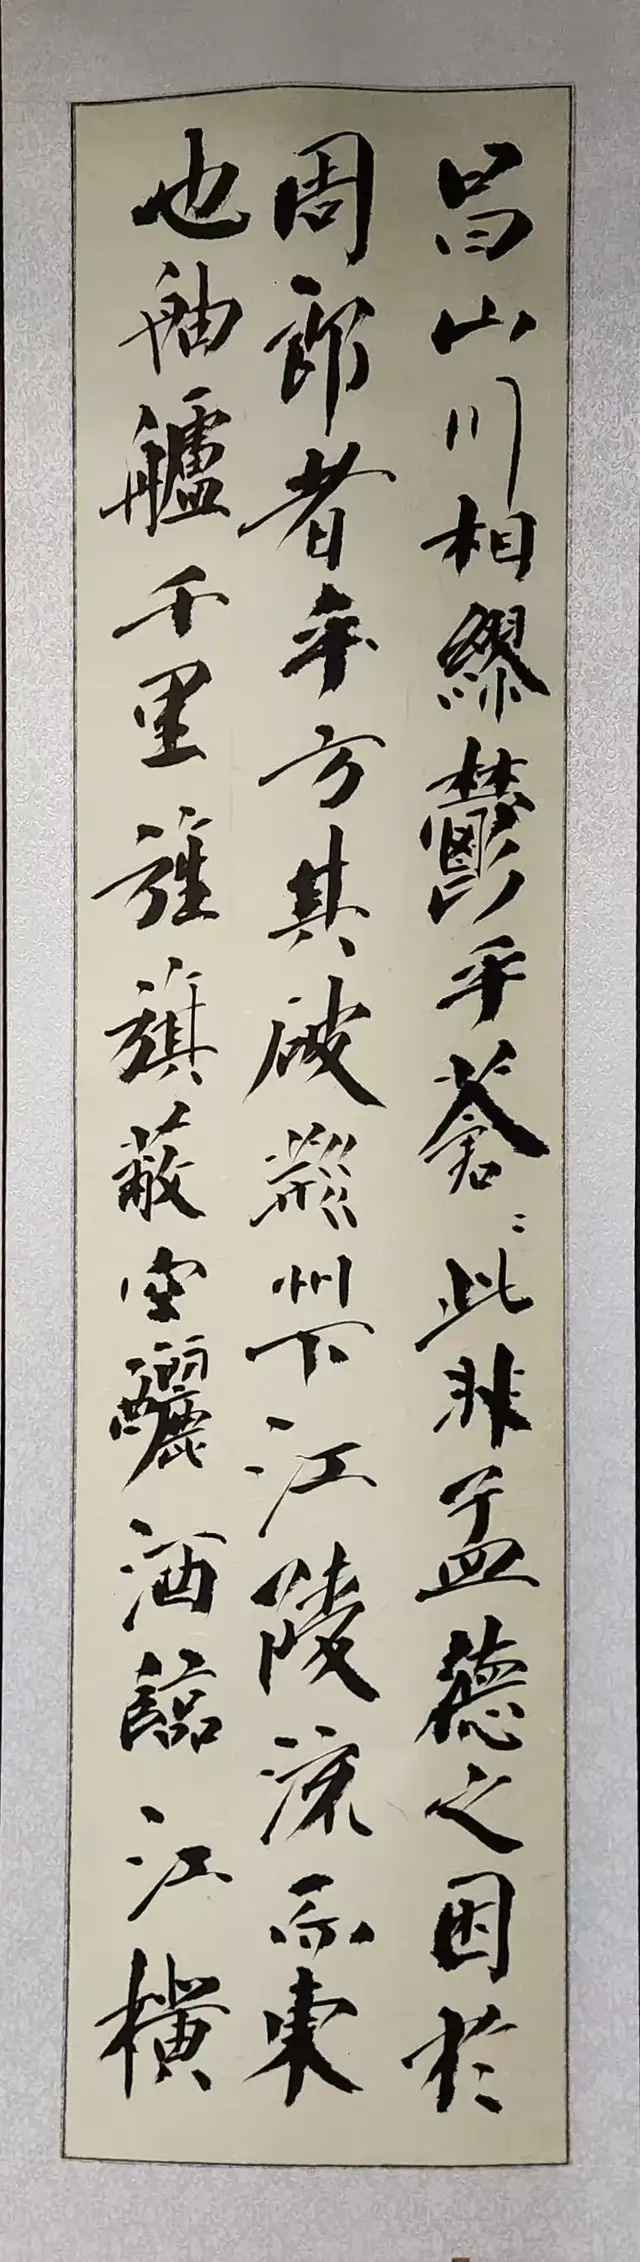 昌山川相繆鬱乎蒼〻此非孟德之困於
周郎者乎方其破荊州下江陵流而東
也舳艫千里旌旗蔽空釃酒臨江橫